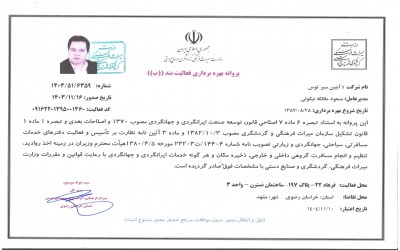 جمهوری اسلامی ایران
پروانه بهره برداری فعالیت بند ((ب))
شماره: ۱۴۰۳/۵۱/۶۳۵۹
تاریخ صدور: ۱۴۰۳/۱۱/۱۶
کد فعالیت: ۰۹۱۶۴۲۰۱۳۹۵۰۰۱۴۶۰
نام شرکت: آیین سیر توس
مدیرعامل: مسعود ملائکه نیکوئی
تاریخ شروع بهره برداری: ۱۳۸۷/۰۸/۲۸
این پروانه به استناد تبصره ۶ ماده ۷ اصلاحی قانون توسعه صنعت ایرانگردی و جهانگردی مصوب ۱۳۷۰ و اصلاحات بعدی و تبصره ۱ ماده ۱
قانون تشکیل سازمان میراث فرهنگی و گردشگری مصوب ۱۳۸۲/۱۰/۳ و ماده ۳ آئین نامه نظارت بر تأسیس و فعالیت دفترهای خدمات
مسافرتی، سیاحتی، جهانگردی و زیارتی تصویب نامه شماره
هیأت محترم وزیران در زمینه اخذ روادید،
تنظیم و انجام مسافرت گروهی داخلی و خارجی، ذخیره مکان و هر گونه خدمات ایرانگردی و جهانگردی با رعایت قوانین و مقررات وزارت
میراث فرهنگی، گردشگری و صنایع دستی با مشخصات فوق صادر گردیده است.
محل فعالیت: فرهاد ۲۲- پلاک ۱۹۷- ساختمان نسترن - واحد ۳
استان: خراسان رضوی شهر: مشهد
تاریخ اعتبار: ۱۴۰۴/۱۱/۱۰
سید جواد موسوی
(نقل و انتقال مجوز بدون موافقت مرجع صدور مجوز ممنوع است)